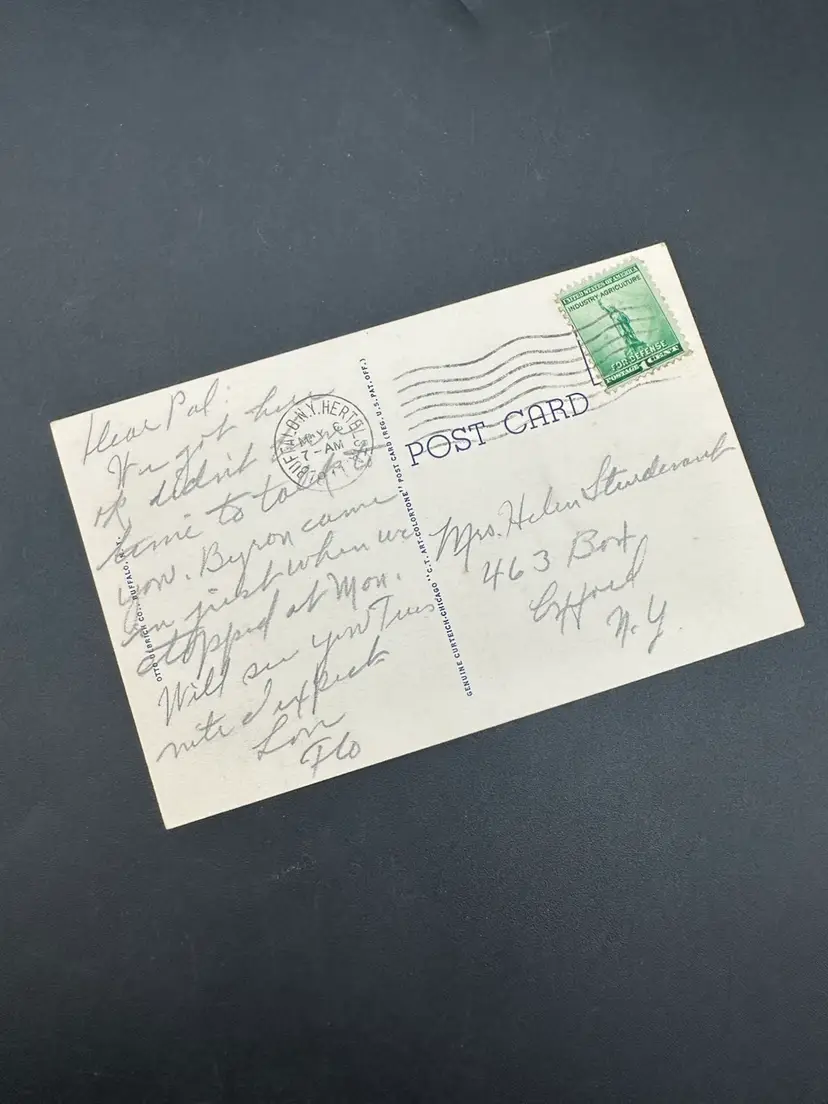 Dear Pal:
We got here
ok, didn't
time to talk to
you. Byron came
in just when we
stopped at Mon.
Will see you Tues
nite I expect
Love
Flo
BUFFALO, N.Y. HERTEL
MAY 6
7-AM
OTTO ULBRICH CO., BUFFALO, N.Y.
GENUINE CURTEICH-CHICAGO "C.T. ART-COLORTONE" POST CARD (REG. U.S. PAT. OFF.)
UNITED STATES OF AMERICA
INDUSTRY AGRICULTURE
FOR DEFENSE
POSTAGE 1 CENT
POST CARD
Mrs. Helen Sturdevant
463 Box
Oxford
N.Y.